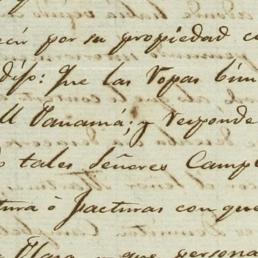 ecir por su propiedad co
dijo: Que las Topas
Panamá; y responde
tales Señores Camp
tura ó facturas con que
que persona